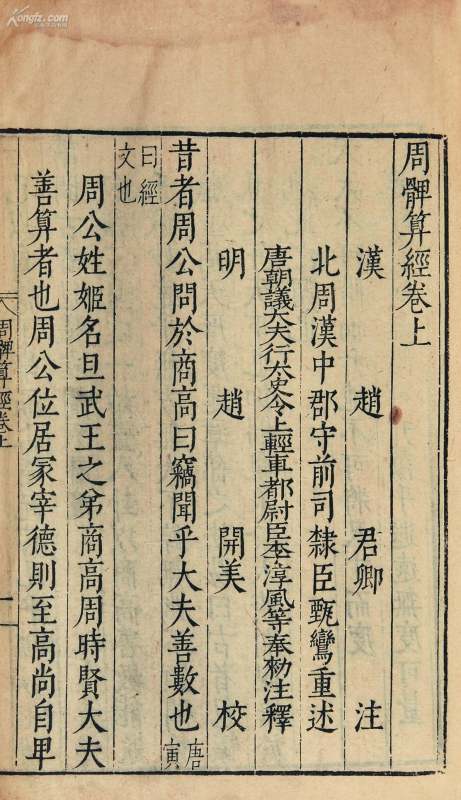 周髀算經卷上
漢 趙 君卿 注
北周漢中郡守前司隸臣甄鸞重述
唐朝議大夫行太史令上輕車都尉臣李淳風等奉勑注釋
明 趙 開美 校
昔者周公問於商高曰竊聞乎大夫善數也
唐
寅
曰經
文也
周公姓姬名旦武王之弟商高周時賢大夫
善算者也周公位居冢宰德則至高尚自卑
周髀算經卷上
一
Kongfz.com